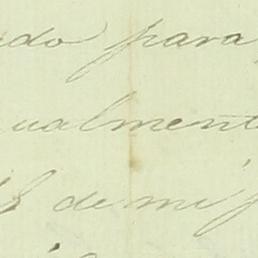 ado para
ualment
de mi